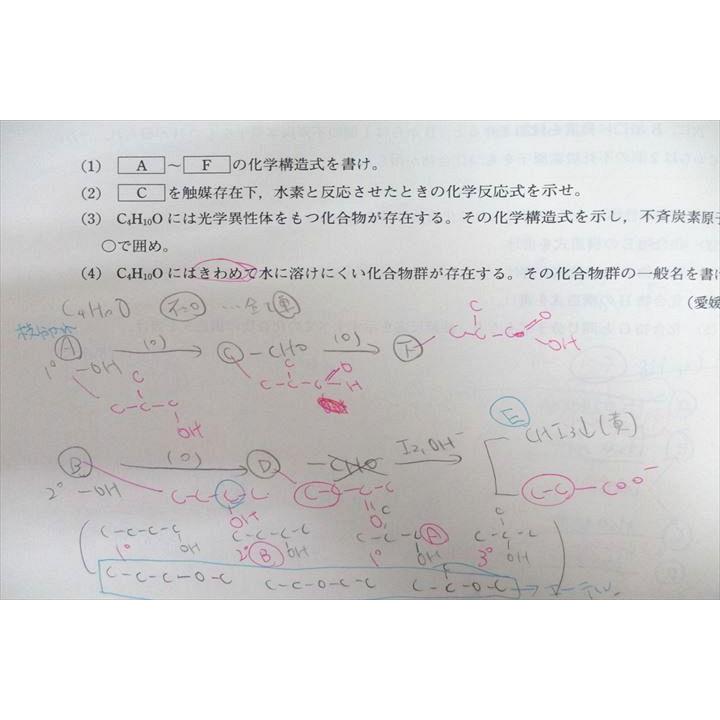 (1) A ～ F の化学構造式を書け。
(2) C を触媒存在下，水素と反応させたときの化学反応式を示せ。
(3) C₄H₁₀Oには光学異性体をもつ化合物が存在する。その化学構造式を示し，不斉炭素原子
○で囲め。
(4) C₄H₁₀Oにはきわめて水に溶けにくい化合物群が存在する。その化合物群の一般名を書け
(愛媛
C₄H₁₀O …全て単
A (O) C -CHO (O) F C C-C-C O OH
1° -OH
C C-C-C OH
C C-C-C O H
E CHI₃↓(黄)
B (O) D -CHO I₂, OH⁻
2° -OH C-C-C-C OH C-C-C-C O C-C-COO⁻
C-C-C-C OH 1° C-C-C-C OH 2° B C C-C-C OH 1° A C C-C-C OH 3°
C-C-C-O-C C-C-O-C-C C C-C-O-C → エーテル